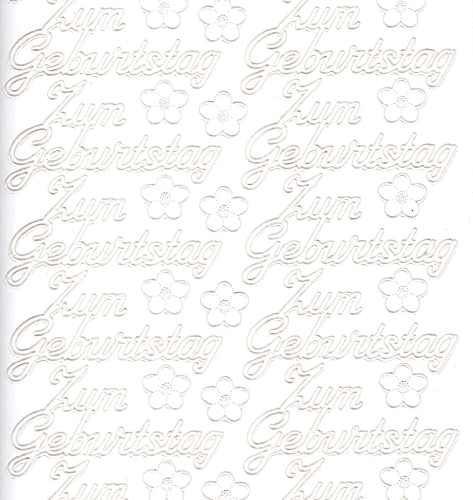 Zum Zum
Geburtstag Geburtstag
Zum Zum
Geburtstag Geburtstag
Zum Zum
Geburtstag Geburtstag
Zum Zum
Geburtstag Geburtstag
Zum Zum
Geburtstag Geburtstag
Zum Zum